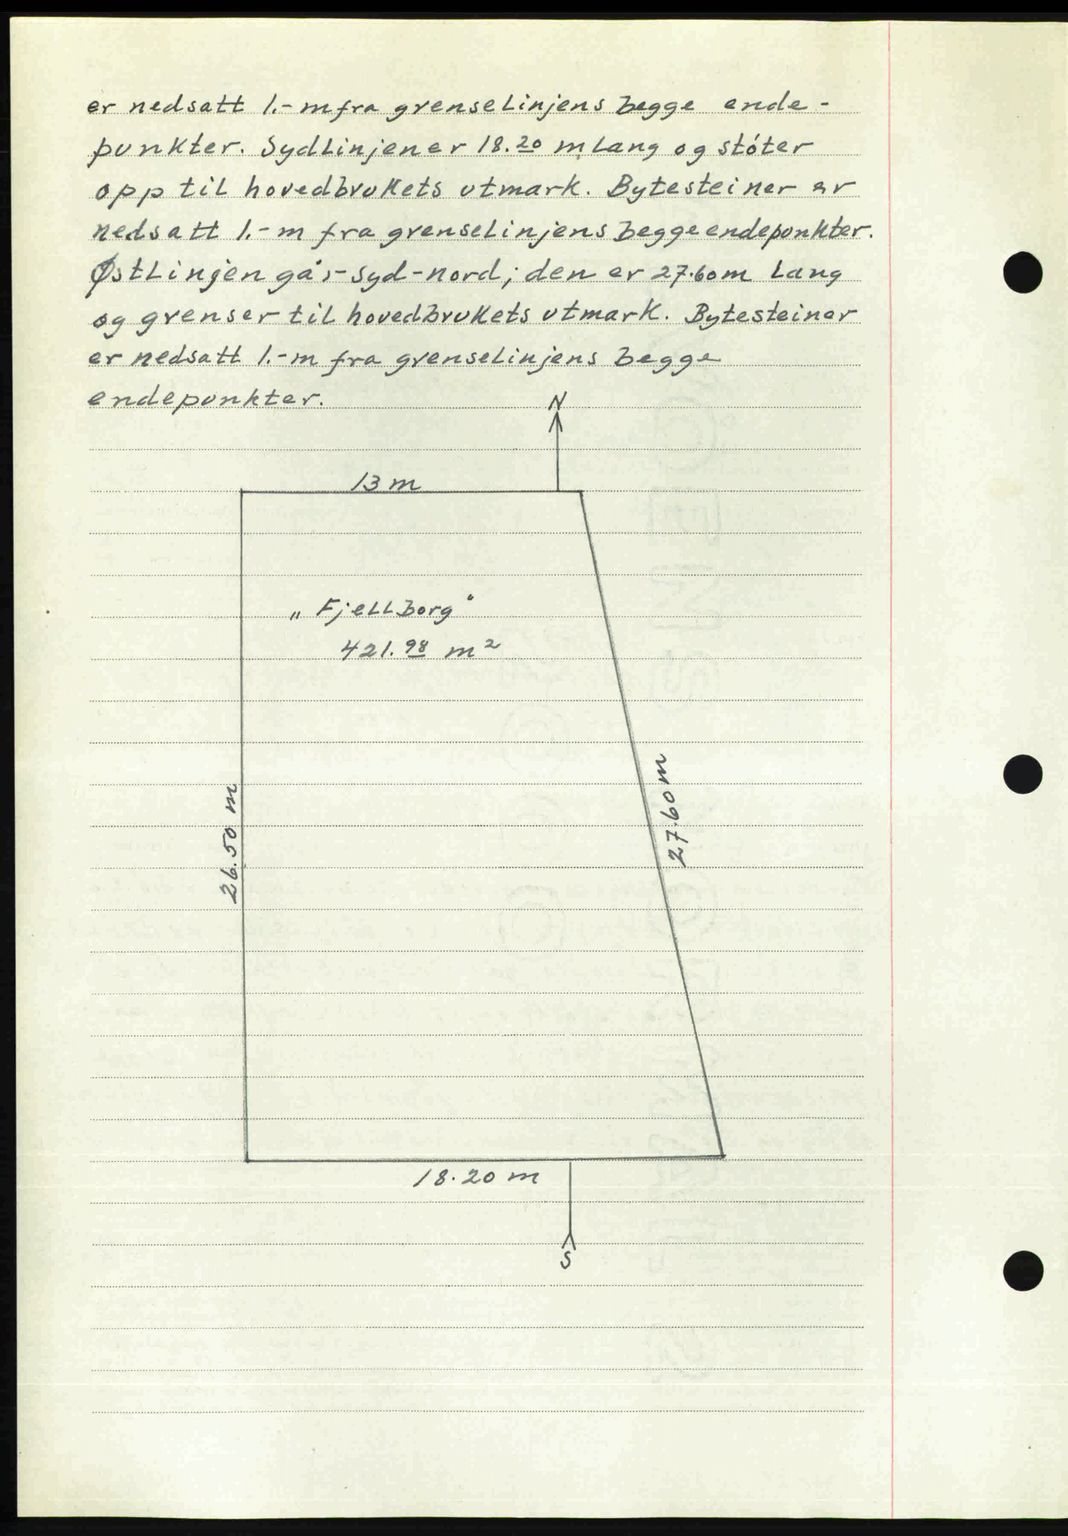 er nedsatt 1.- m fra grenselinjens begge ende-
punkter. Sydlinjen er 18.20 m lang og stöter
opp til hovedbrukets utmark. Bytesteiner er
nedsatt 1.- m fra grenselinjens begge endepunkter.
Østlinjen går syd-nord; den er 27.60 m lang
og grenser til hovedbrukets utmark. Bytesteiner
er nedsatt 1.- m fra grenselinjens begge
endepunkter.
N
13 m
„Fjellborg"
421.98 m²
26.50 m
27.60 m
18.20 m
S